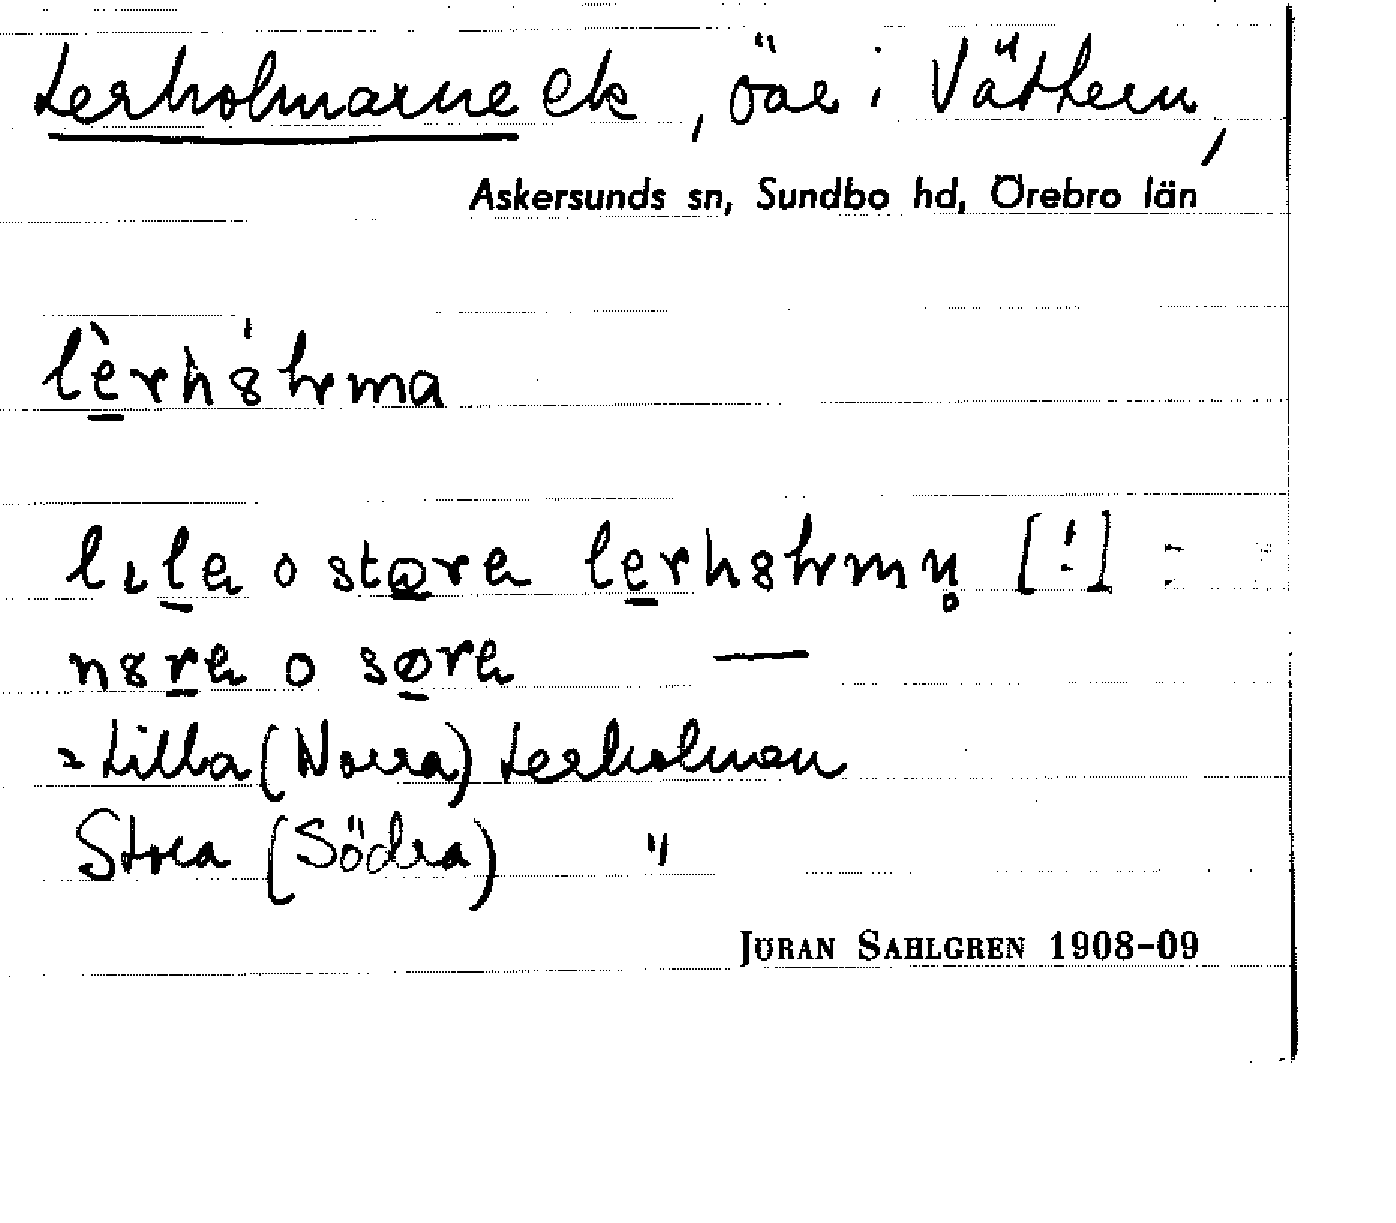 Lerholmarne ek, öar i Vättern,
Askersunds sn, Sundbo hd, Örebro län
lèrhȣ́lrma
lɩla o støra lerhȣlrmn̥ [!] =
nȣra o søra —
= Lilla (Norra) Lerholmen
Stora (Södra) "
JÖRAN SAHLGREN 1908-09